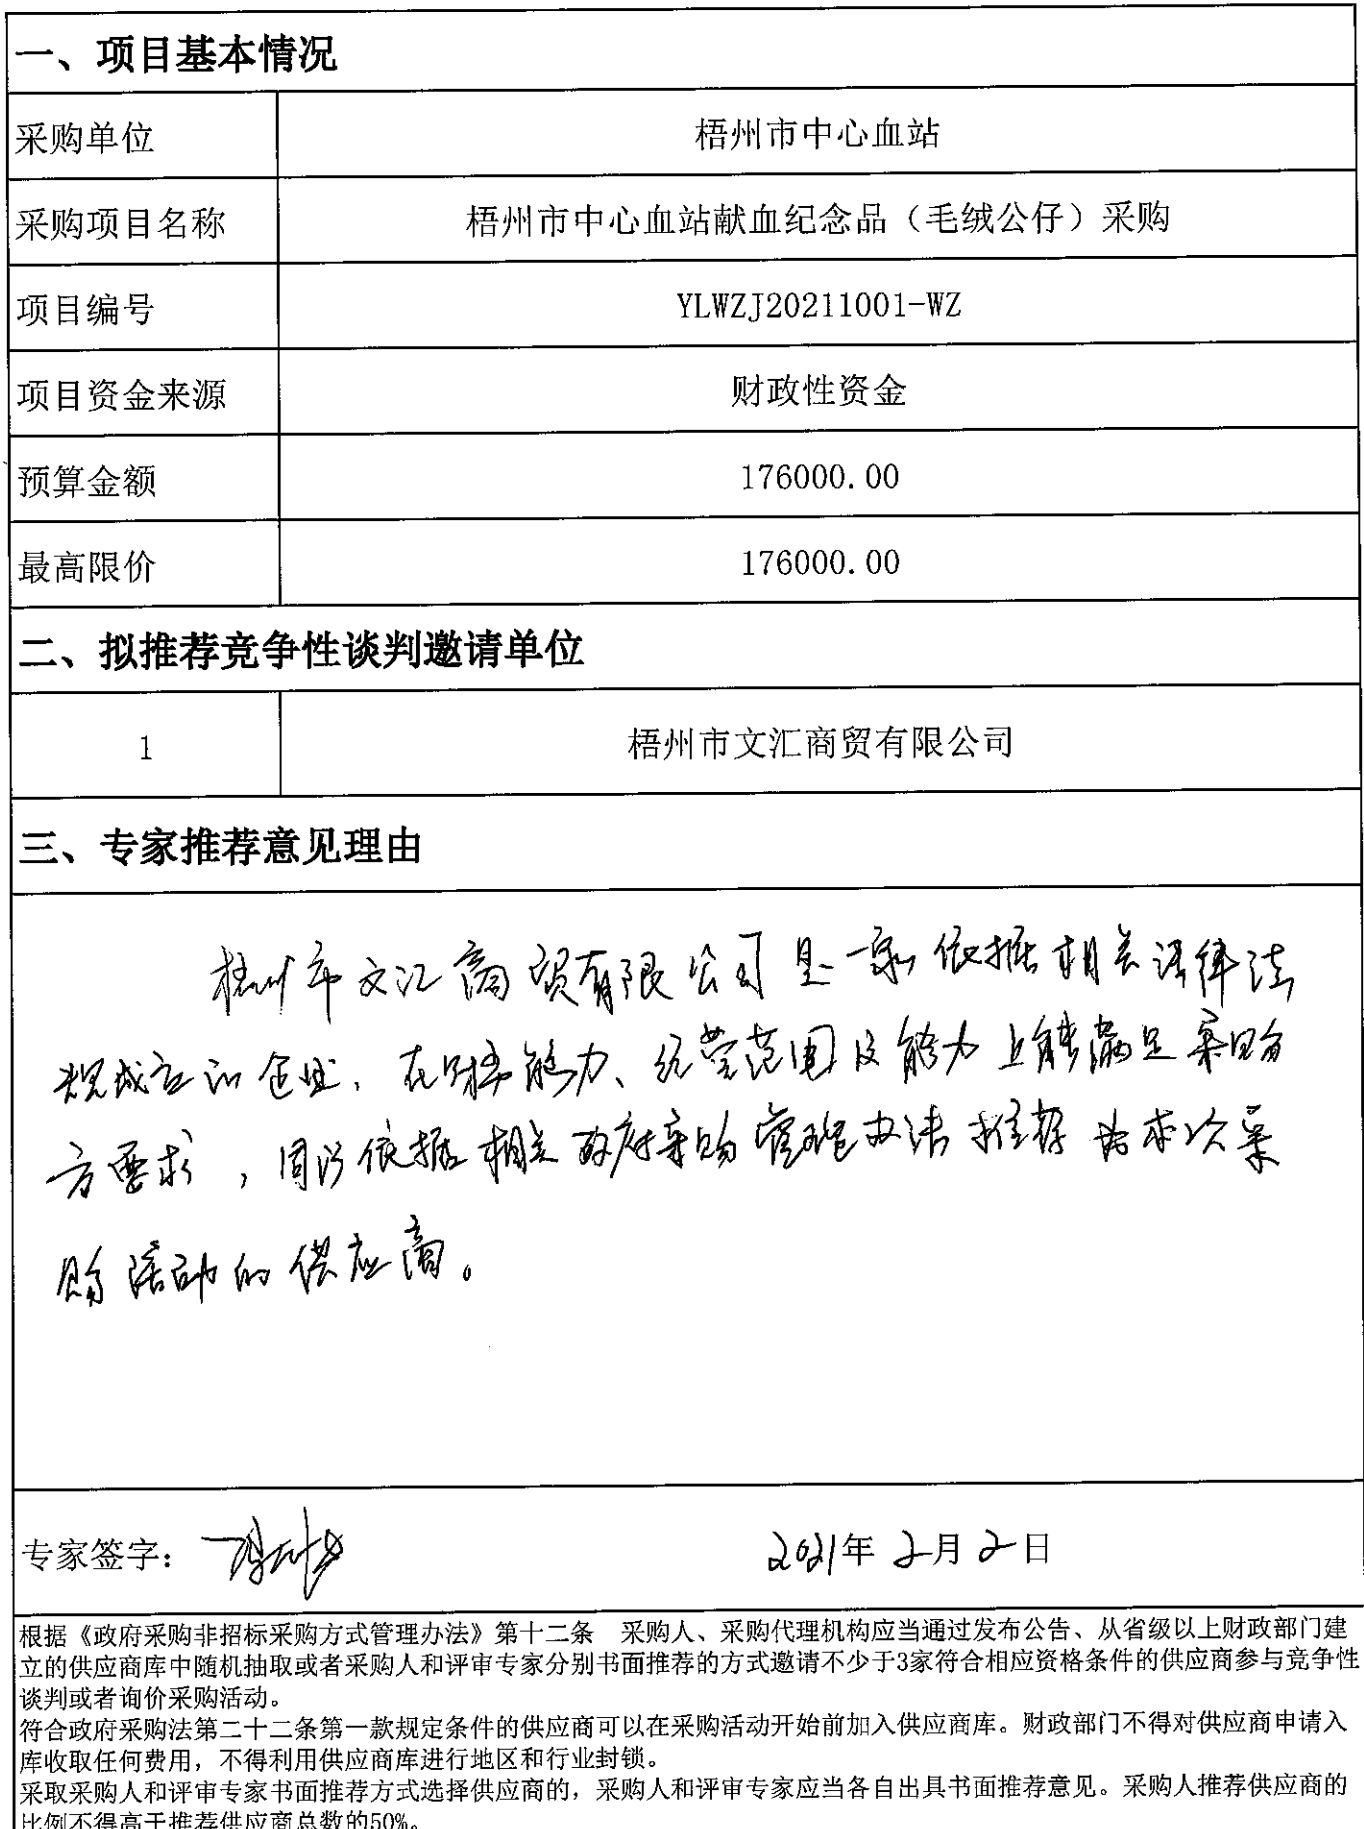 一、项目基本情况
采购单位 梧州市中心血站
采购项目名称 梧州市中心血站献血纪念品（毛绒公仔）采购
项目编号 YLWZJ20211001-WZ
项目资金来源 财政性资金
预算金额 176000.00
最高限价 176000.00
二、拟推荐竞争性谈判邀请单位
1 梧州市文汇商贸有限公司
三、专家推荐意见理由
梧州市文汇商贸有限公司是一家依据相关法律法
规成立的企业，在资格能力、经营范围及能力上能满足采购
方要求，同以依据相关政府采购管理办法推荐为本次采
购活动的供应商。
专家签字： 2021年2月2日
根据《政府采购非招标采购方式管理办法》第十二条 采购人、采购代理机构应当通过发布公告、从省级以上财政部门建
立的供应商库中随机抽取或者采购人和评审专家分别书面推荐的方式邀请不少于3家符合相应资格条件的供应商参与竞争性
谈判或者询价采购活动。
符合政府采购法第二十二条第一款规定条件的供应商可以在采购活动开始前加入供应商库。财政部门不得对供应商申请入
库收取任何费用，不得利用供应商库进行地区和行业封锁。
采取采购人和评审专家书面推荐方式选择供应商的，采购人和评审专家应当各自出具书面推荐意见。采购人推荐供应商的
比例不得高于推荐供应商总数的50%。